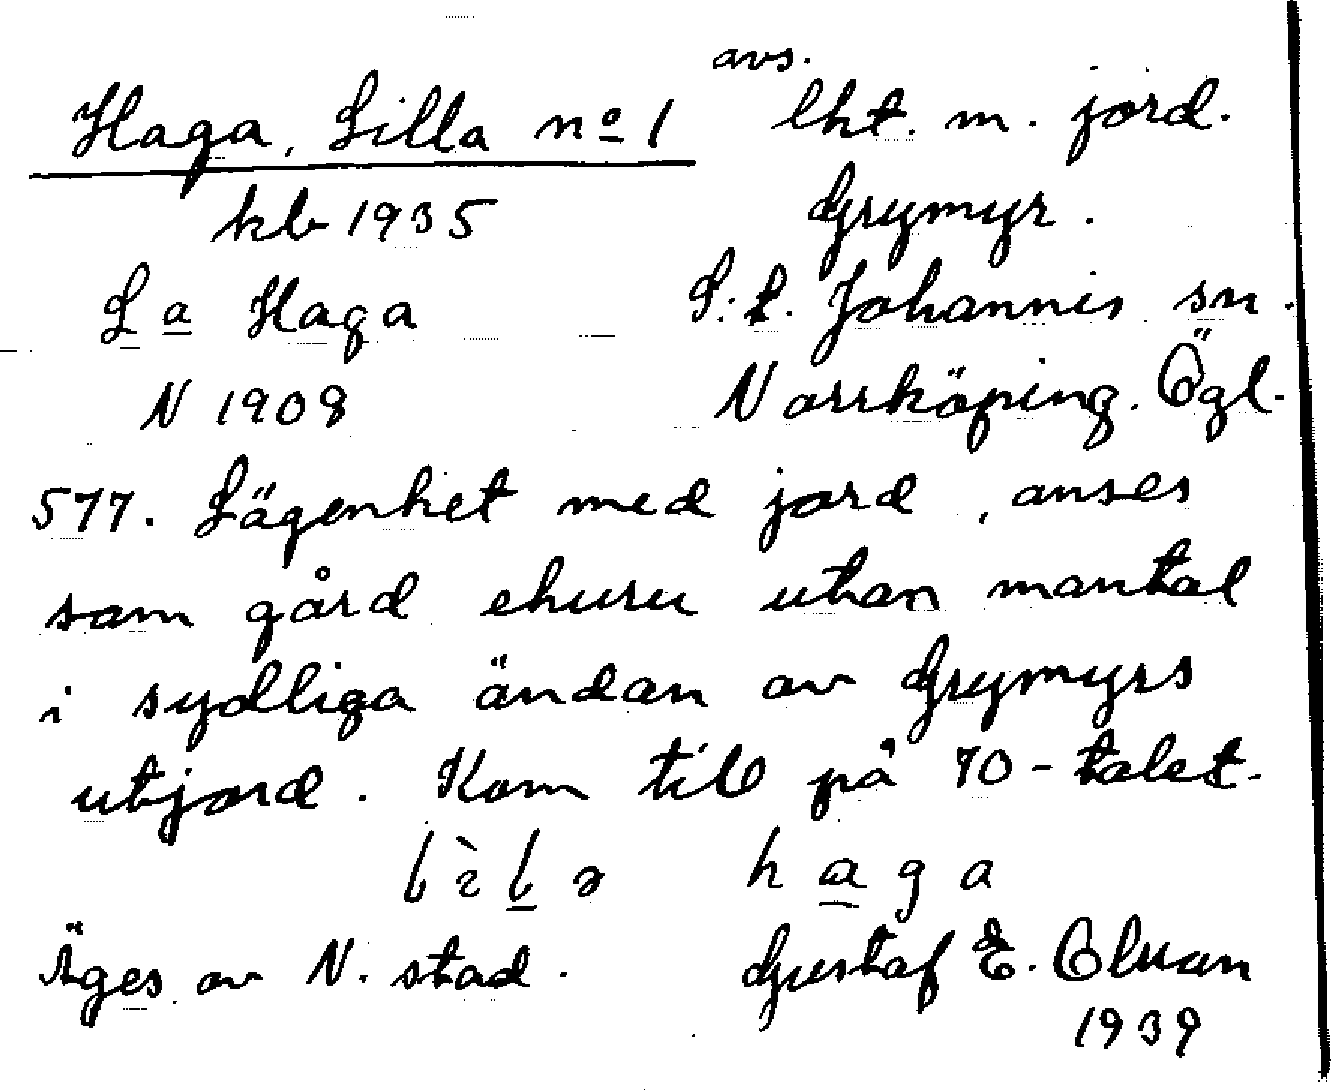 avs.
Haga, Lilla nº 1 lht. m. jord.
kb 1935 Grymyr.
La Haga S:t. Johannis sn.
N 1908 Norrköping. Ögl.
577. Lägenhet med jord, anses
som gård ehuru utan mantal
i sydliga ändan av Grymyrs
utjord. Kom till på 70-talet.
haga
Äges av N. stad. Gustaf E.
1939